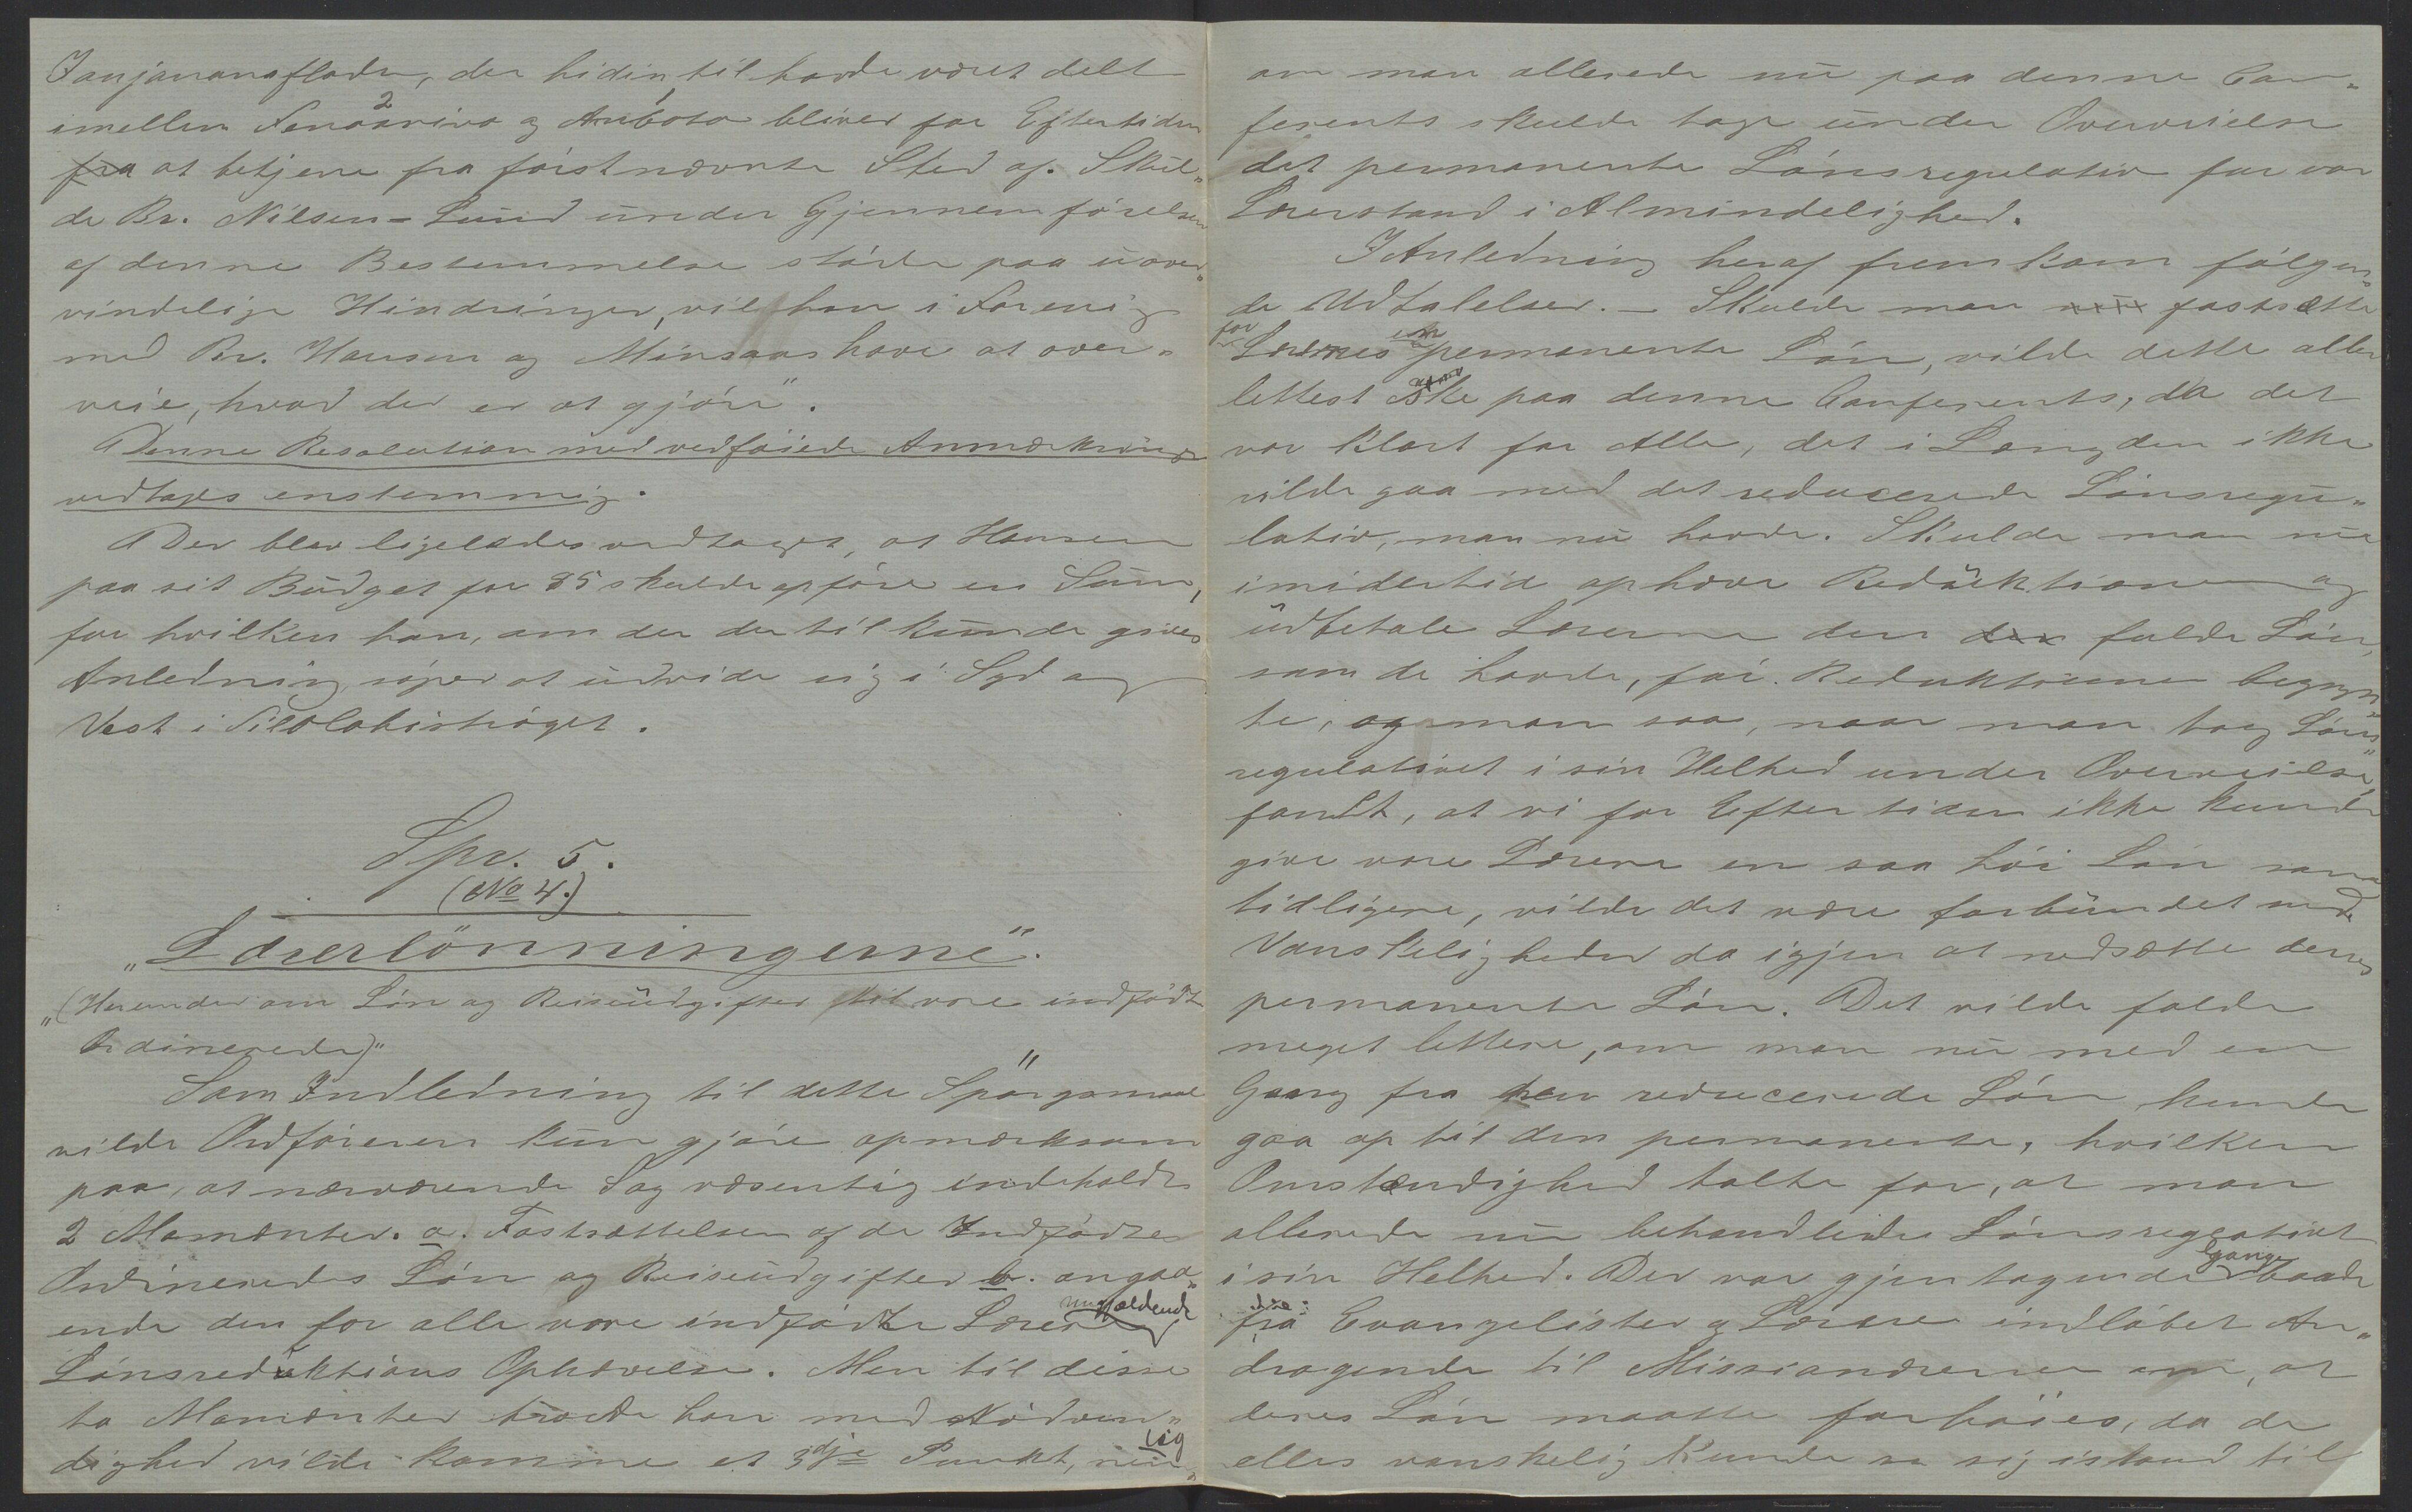 Fanjananafladen, der hidindtil havde været delt
imellem Fenoarivo 2 og Ambato 1 bliver for Eftertiden
fra at betjene fra förstnævnte Sted af. Skul„
de Br. Nilsen-Lund under Gjennemförelsen
af denne Bestemmelse störte paa uover„
vindelige Hindringer, vil han i Forening
med Br. Hansen og Minsaas have at over„
veie, hvad der er at gjöre".
Denne Resolution med vedföiede Anmærkning
vedtages enstemmig.
Der blev ligeledes vedtaget, at Hansen
paa sit Budget for 85 skulde opföre en Sum,
for hvilken han, om der dertil kunde gives
Anledning, söger at udvide sig i Syd og
Vest i
Spr. 5.
(No 4.)
„Lærerlönningerne".
„(Herunder om Lön og Reiseudgifter til vore indfödte
Ordinerede)"
Som Indledning til dette Spörgsmaal
vilde Ordföreren kun gjöre opmærksom
paa, at nærværende Sag væsentlig indeholdt
2 Momenter. a. Fastsættelsen af de Indfödte
Ordineredes Lön og Reiseudgifter b. angaa„
ende den for alle vore indfödte Lærere gjældende
Lönsreduktions Ophævelse. Men til disse
to Momenter troede han med Nödven„
dighed vilde komme et 3dje Punkt, nemlig
om man allerede nu paa denne Con„
ferents skulde tage under Overveielse
det permanente Lönsregulativ for vor
Lærerstand i Almindelighed.
I Anledning heraf fremkom fölgen„
de Udtalelser. – Skulde man fastsætte
for Lærernes en permanente Lön, vilde dette aller
lettest ske paa denne Conferents, da det
var klart for Alle, det i Længden ikke
vilde gaa med det reducerede Lönsregu„
lativ, man nu havde. Skulde man nu
imidlertid ophæve Reduktionen og
udbetale Lærerne den den fulde Lön,
som de havde, för Reduktionen begyn„
te, og man saa, naar man tog Löns„
regulativet i sin Helhed under Overveielse,
fandt, at vi for Eftertiden ikke kunde
give vore Lærere en saa höi Lön som
tidligere, vilde det være forbundet med
Vanskeligheder da igjen at nedsætte deres
permanente Lön. Det vilde falde
meget lettere, om man nu med en
Gang fra den reducerede Lön kunde
gaa op til den permanente, hvilken
Omstændighed talte for, at man
allerede nu behandlede Lönsreglativet
i sin Helhed. Der var gjentagende Gange baade
fra Evangelister og Lærere indlöbet An„
dragende til Missionærerne om, at
deres Lön maatte forhöies, da de
elles vanskelig kunde se sig istand til